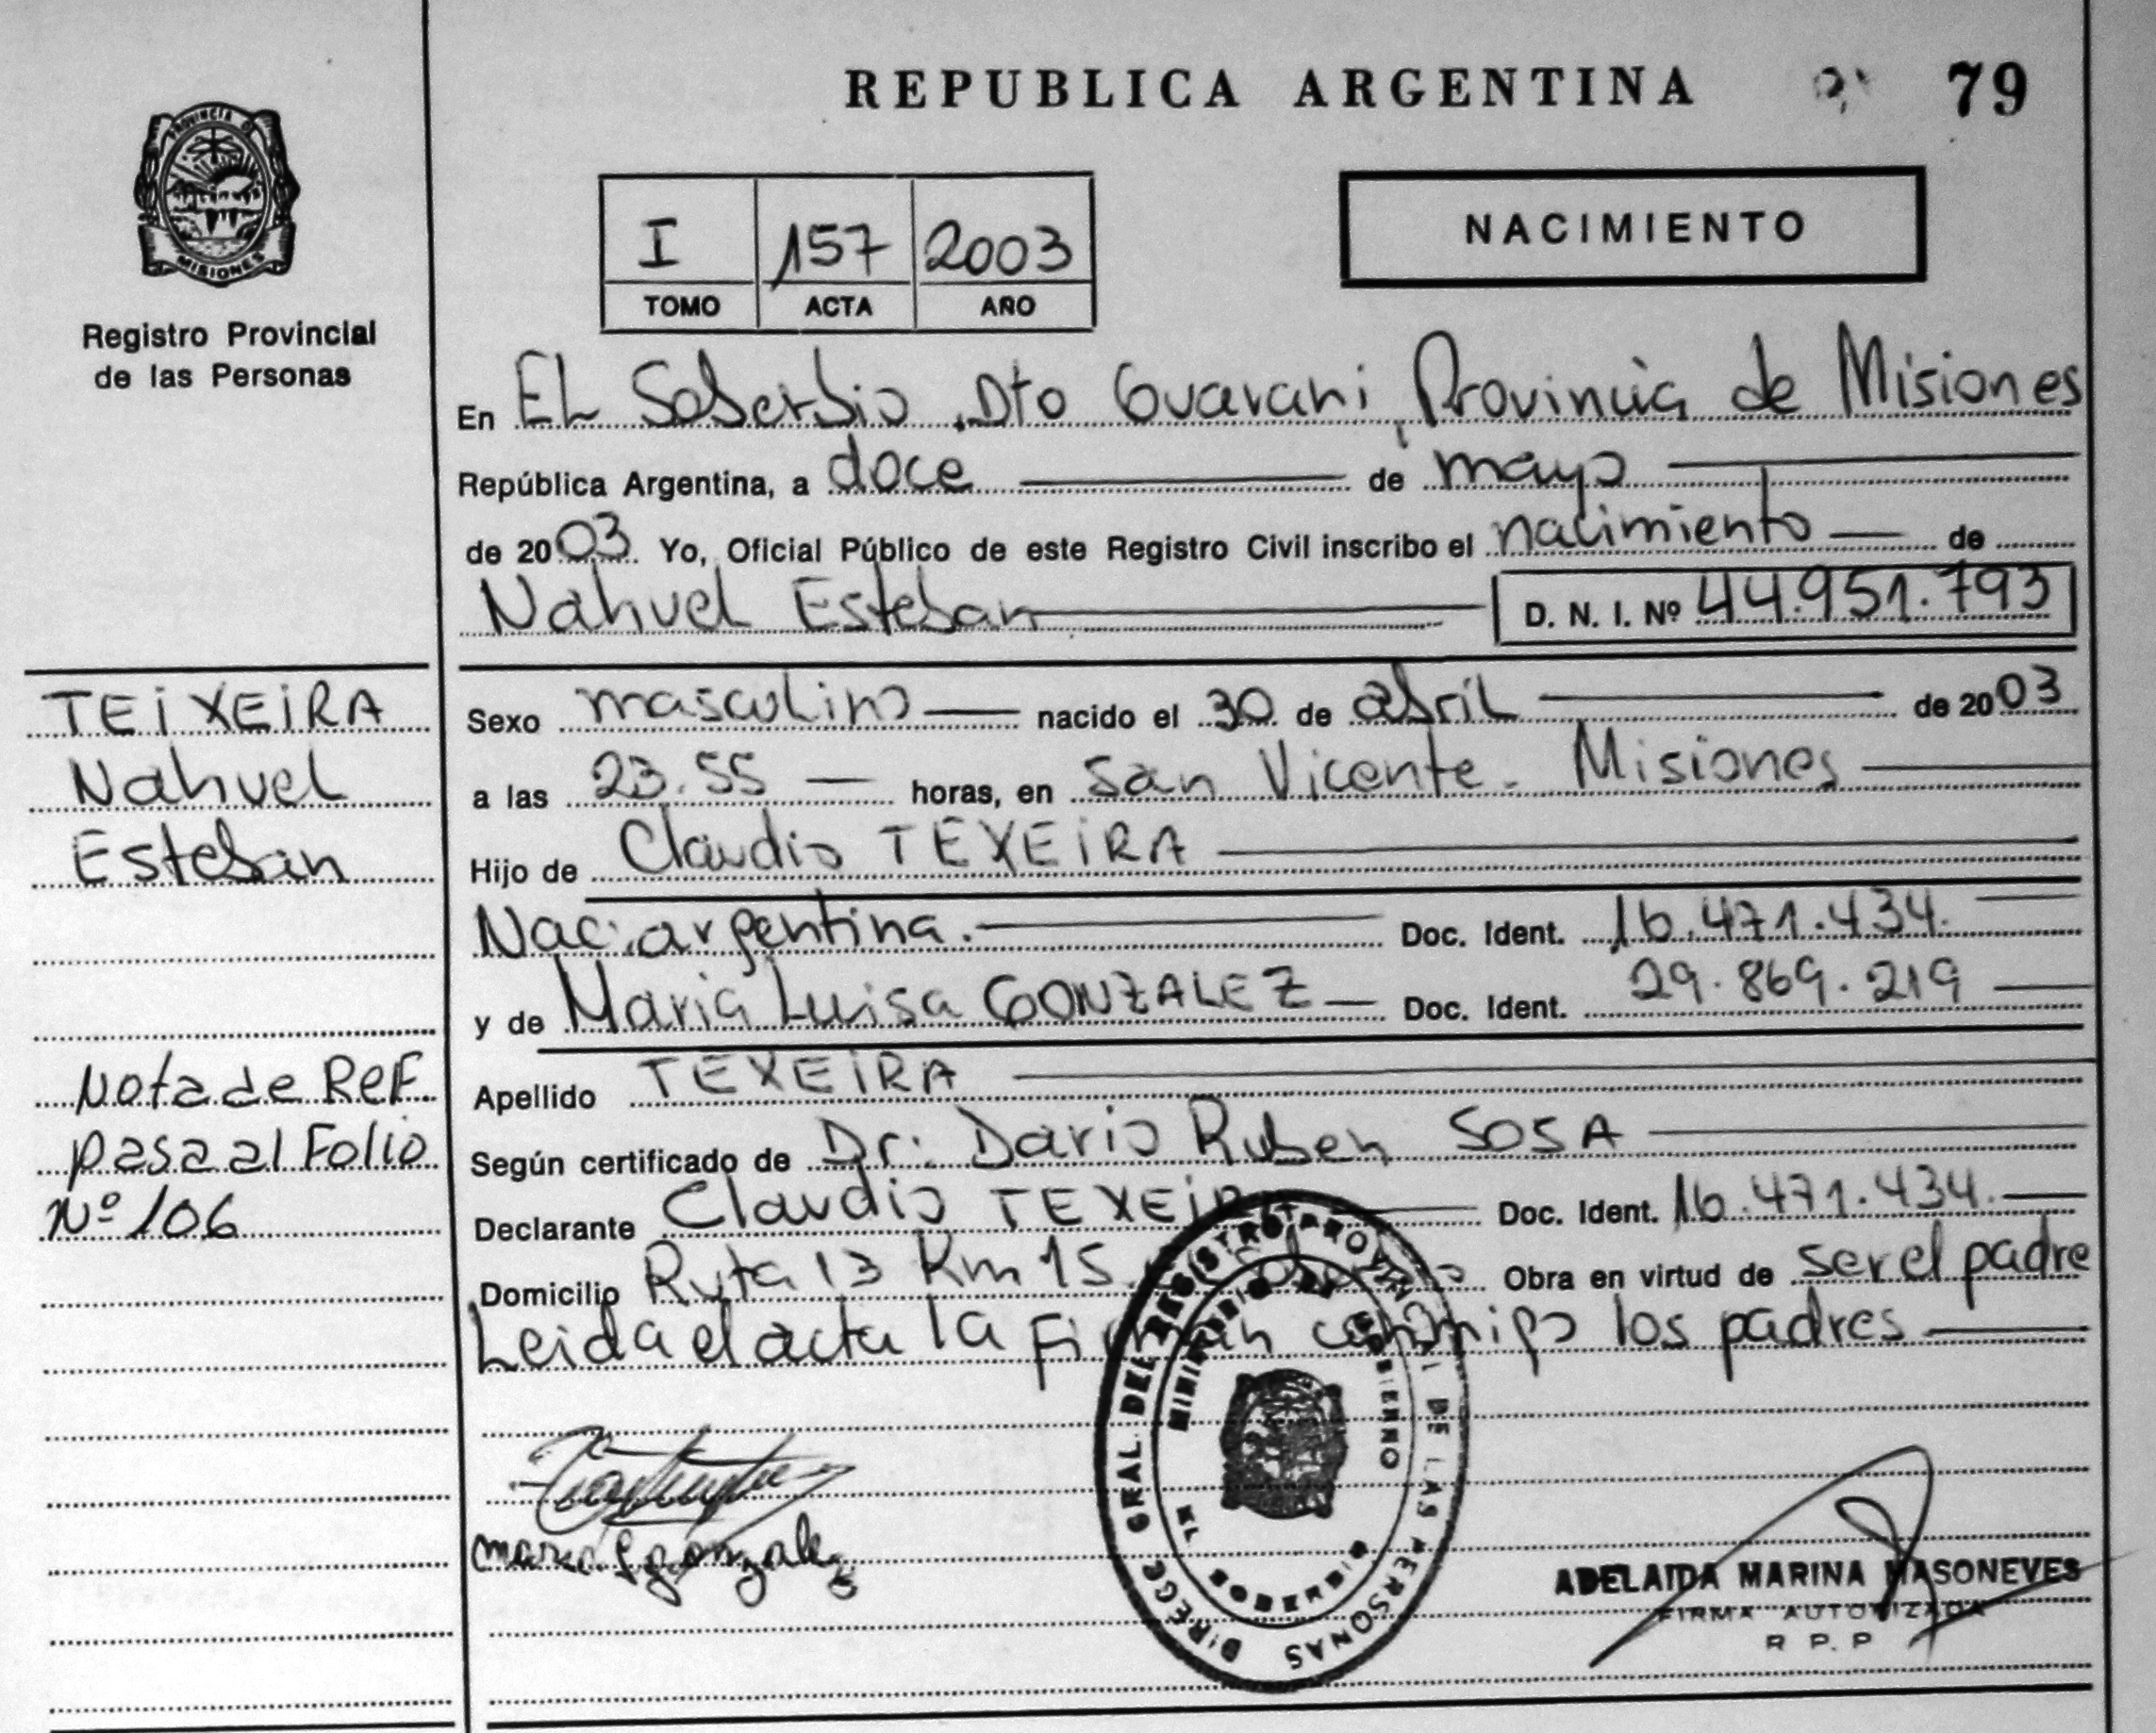 REPUBLICA ARGENTINA
79
PROVINCIA D
MISIONES
Registro Provincial
de las Personas
I 157 2003
TOMO ACTA AÑO
NACIMIENTO
En EL Soberbio, Dto Guarani, Provincia de Misiones
República Argentina, a doce de mayo
de 2003 Yo, Oficial Público de este Registro Civil inscribo el nacimiento de
Nahuel Esteban D. N. I. Nº 44.951.793
TEIXEIRA
Nahuel
Esteban
Sexo masculino nacido el 30 de abril de 2003
a las 23.55 horas, en San Vicente - Misiones
Hijo de Claudio TEXEIRA
Nac. argentina. Doc. Ident. 16.471.434.
y de Maria Luisa GONZALEZ Doc. Ident. 29.869.219
Nota de Ref.
pasa al Folio
Nº 106
Apellido TEXEIRA
Según certificado de Dr. Dario Ruben SOSA
Declarante Claudio TEXEIRA Doc. Ident. 16.471.434.
Domicilio Ruta 13 Km 15. Obra en virtud de ser el padre
Leida el acta la firman conmigo los padres
DIRECC GRAL DEL REGISTRO PROVINCIAL DE LAS PERSONAS
MINISTERIO DE GOBIERNO
EL SOBERBIO
maria l gonzalez
ADELAIDA MARINA MASONEVES
FIRMA AUTORIZADA
R P. P